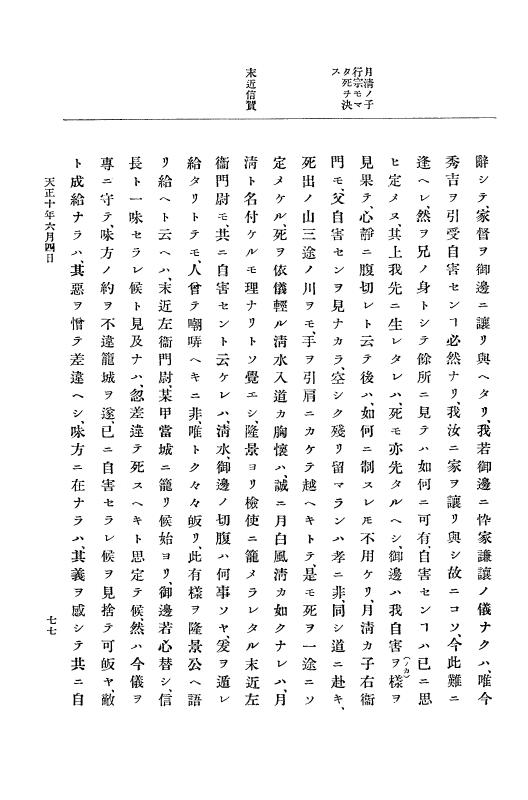 月清ノ子
行宗モマ
タ死チ決
ス
末近信賀
辭シテ、家督ヲ御邊ニ讓リ與ヘタリ、我若御邊ニ忰家謙讓ノ儀ナクハ、唯今
秀吉ヲ引受自害セン𪜈必然ナリ、我汝ニ家ヲ讓リ與シ故ニコソ、今此難ニ
逢ヘレ、然ヲ兄ノ身トシテ餘所ニ見テハ如何ニ可有、自害センコハ已ニ思
ヒ定メヌ、其上我先ニ生レタレハ、死モ亦先タルヘシ、御邊ハ我自害ヲ樣ヲ
(ノカ)
見果テ、心靜ニ腹切レト云テ後ハ、如何ニ制スレ𪜈不用ケリ、月淸カ子右衞
門モ、父自害センヲ見ナカラ、空シク殘リ留マランハ孝ニ非、同シ道ニ赴キ、
死出ノ山三途ノ川ヲモ、手ヲ引肩ニカケテ越ヘキトテ、是モ死ヲ一途ニソ
定メケル、死ヲ依儀輕ル淸水入道カ胸懷ハ、誠ニ月白風淸カ如クナレハ、月
淸ト名付ケルモ理ナリトソ覺エシ、隆景ヨリ檢使ニ籠メラレタル末近左
衞門尉モ、共ニ自害セント云ケレハ、淸水、御邊ノ切腹ハ何事ソヤ、爰ヲ遁レ
給タリトテモ、人曾テ嘲哢ヘキニ非、唯トク々々皈リ、此有樣ヲ隆景公ヘ語
リ給ヘト云ヘハ、末近左衞門尉、某甲當城ニ籠リ候始ヨリ、御邊若心替シ、信
長ト一味セラレ候ト見及ナハ、忽差違テ死スヘキト思定テ候、然ハ今儀ヲ
專ニ守テ、味方ノ約ヲ不違籠城ヲ遂、已ニ自害セラレ候ヲ見捨テ可皈ヤ、敵
ト成給ナラハ、其惡ヲ憎テ差違ヘシ、味方ニ在ナラハ、其義ヲ感シテ共ニ自
天正十年六月四日
七七